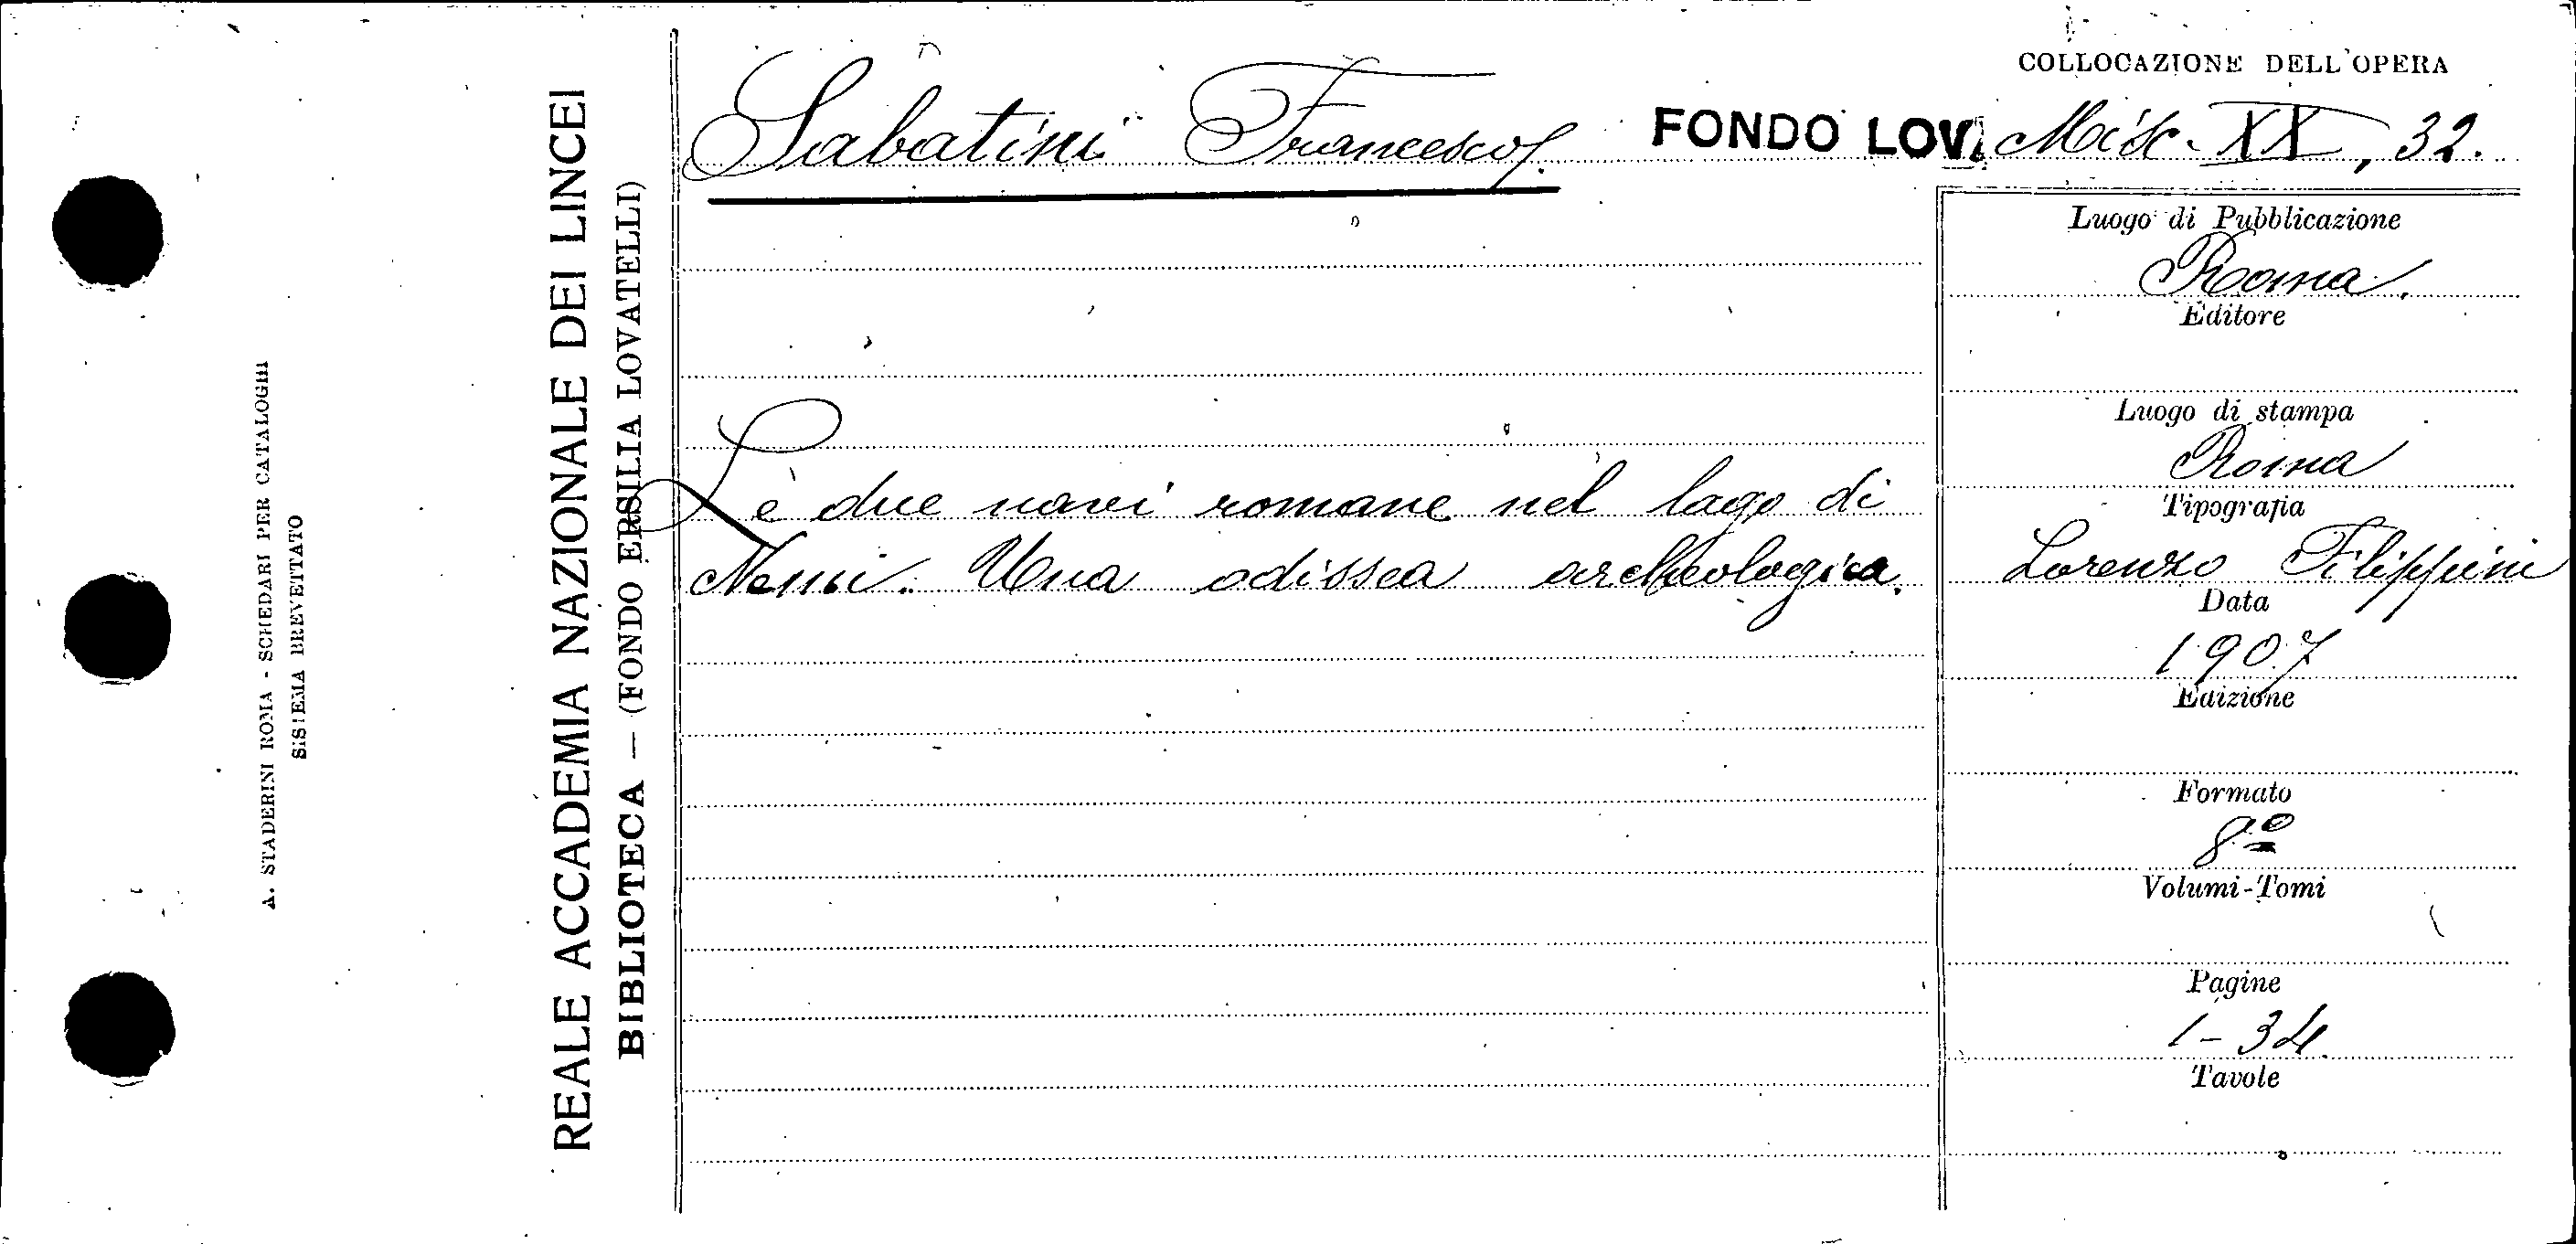 A. STADERINI ROMA - SCHEDARI PER CATALOGHI
SISTEMA BREVETTATO
REALE ACCADEMIA NAZIONALE DEI LINCEI
BIBLIOTECA — (FONDO ERSILIA LOVATELLI)
COLLOCAZIONE DELL'OPERA
Sabatini Francesco. FONDO LOV. Misc. XX, 32.
Le due navi romane nel lago di
Nemi. Una odissea archeologica.
Luogo di Pubblicazione
Roma.
Editore
Luogo di stampa
Roma
Tipografia
Lorenzo Filippini
Data
1907
Edizione
Formato
8º
Volumi-Tomi
Pagine
1-34
Tavole